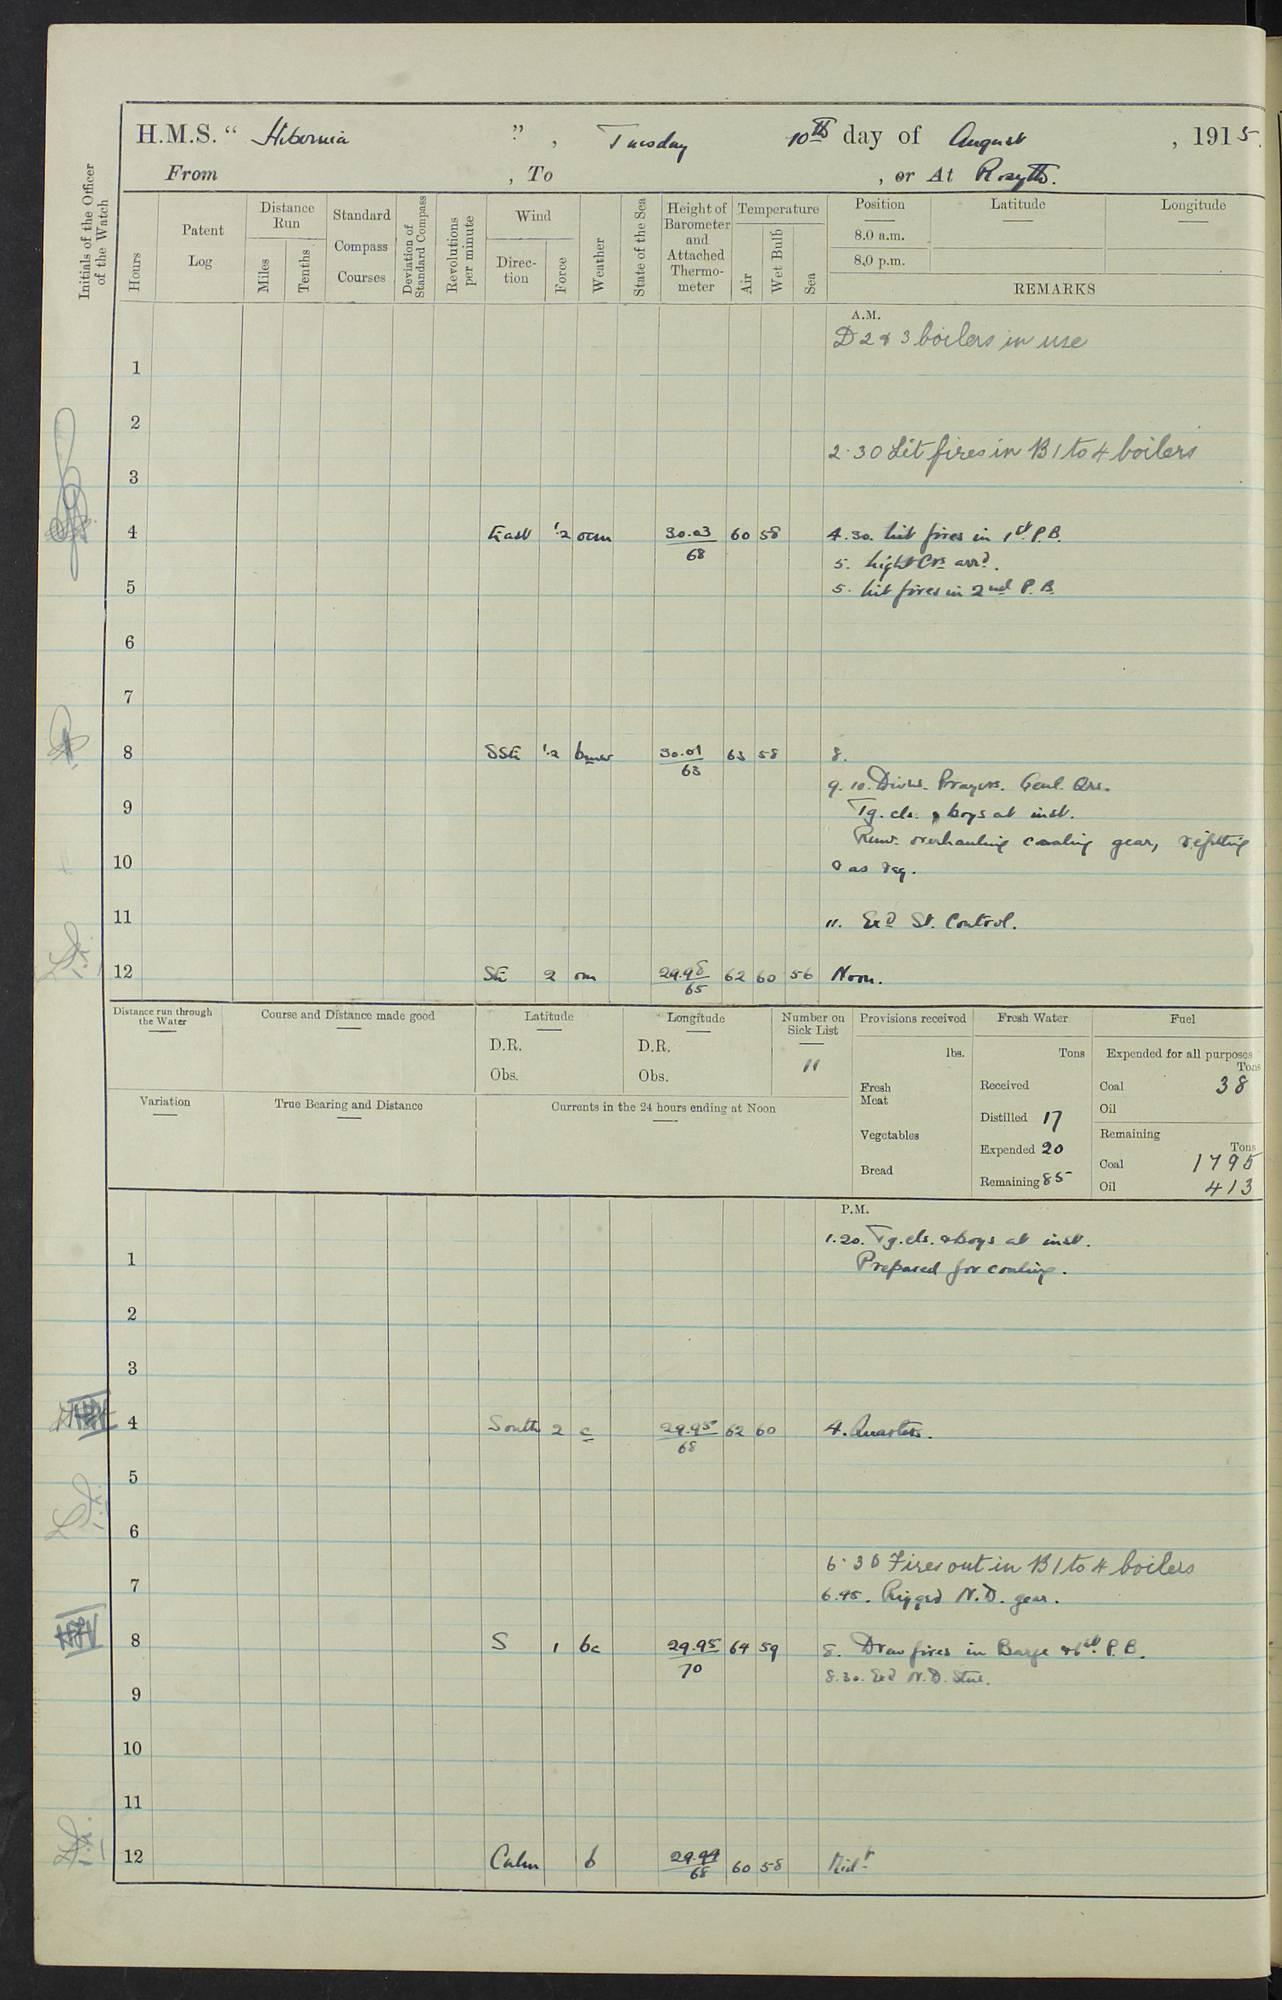 H.M.S. “ Hibernia ”, Tuesday 10th day of August, 1915.
From , To , or At Rosyth.
Initials of the Officer of the Watch
Hours
Patent Log
Distance Run
Miles
Tenths
Standard Compass Courses
Deviation of Standard Compass
Revolutions per minute
Wind
Direction
Force
Weather
State of the Sea
Height of Barometer and Attached Thermometer
Temperature
Air
Wet Bulb
Sea
Position
8.0 a.m.
8.0 p.m.
Latitude
Longitude
REMARKS
A.M.
D 2 & 3 boilers in use
1
2
2.30 Lit fires in B 1 to 4 boilers
3
4 East 1.2 ocm 30.03/68 60 58 4.30. Lit fires in 1st P.B.
5. Light Crs arrd.
5 5. Lit fires in 2nd P.B.
6
7
8 SSE 1.2 bmw 30.01/63 63 58 8.
9.10. Divns. Prayers. Genl. Qrs.
9 Tg. cls. & boys at inst.
Remr. overhauling coaling gear, refitting
10 & as req.
11 11. Exd St. Control.
12 SE 2 om 29.98/65 62 60 56 Noon.
Distance run through the Water
Course and Distance made good
Latitude
D.R.
Obs.
Longitude
D.R.
Obs.
Number on Sick List
11
Provisions received
lbs.
Fresh Meat
Vegetables
Bread
Fresh Water
Tons
Received
Distilled 17
Expended 20
Remaining 85
Fuel
Expended for all purposes
Tons
Coal 38
Oil
Remaining
Tons
Coal 1795
Oil 413
Variation
True Bearing and Distance
Currents in the 24 hours ending at Noon
P.M.
1.20. Tg. cls. & boys at inst.
1 Prepared for coaling.
2
3
4 South 2 c 29.95/68 62 60 4. Quarters.
5
6
6.30 Fires out in B 1 to 4 boilers
7 6.45. Rigged N.D. gear.
8 S 1 bc 29.95/70 64 59 8. Drew fires in Barge & 1st P.B.
8.30. Exd N.D. Stns.
9
10
11
12 Calm b 29.94/68 60 58 Midt